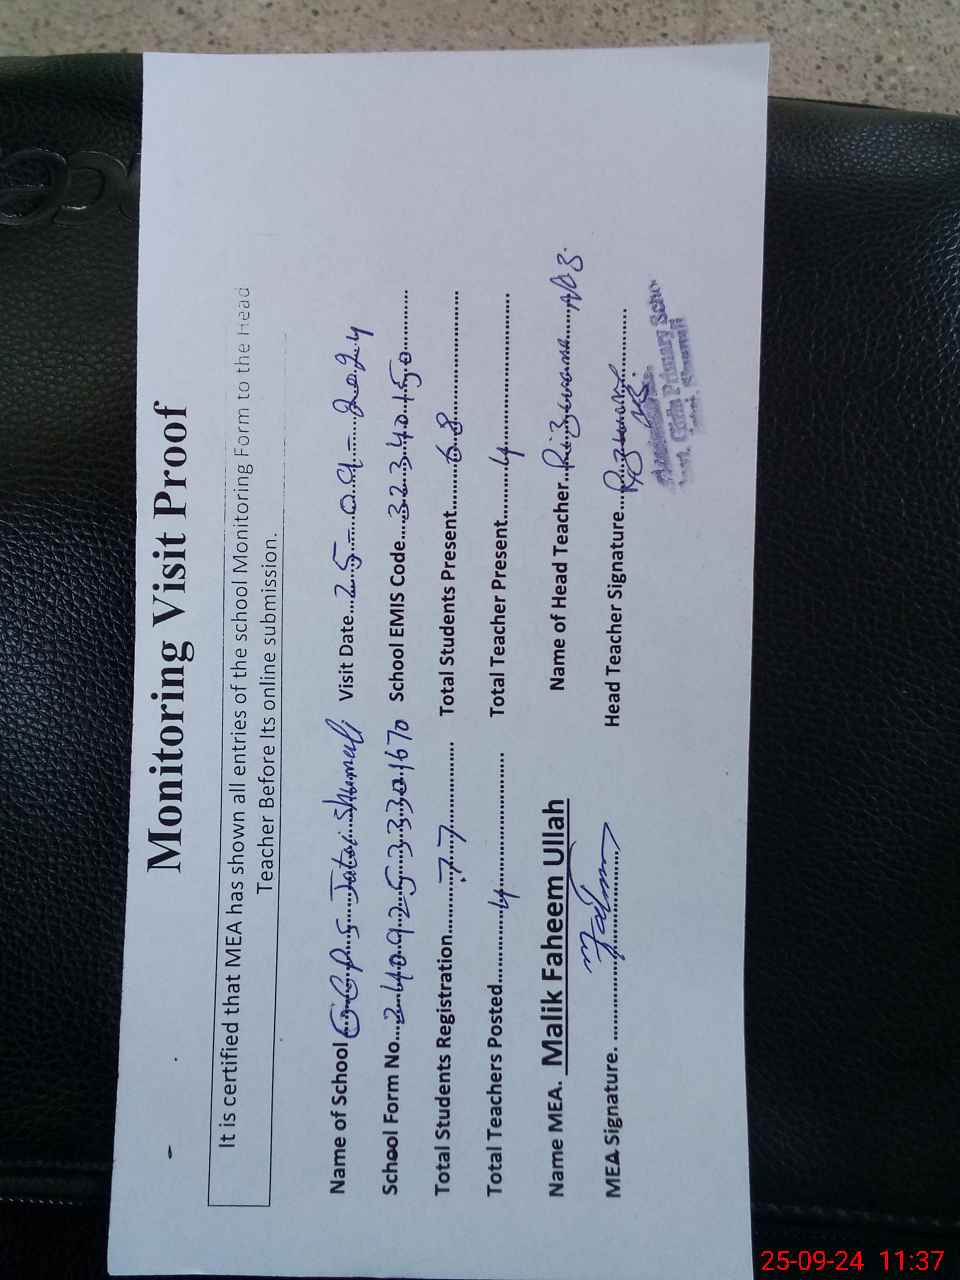 Monitoring Visit Proof
It is certified that MEA has shown all entries of the school Monitoring Form to the Head
Teacher Before Its online submission.
Name of School GGPS Jatoi Shumali Visit Date 25-09-2024
School Form No. 2409253301670 School EMIS Code 32340150
Total Students Registration 77 Total Students Present 68
Total Teachers Posted 4 Total Teacher Present 4
Name MEA. Malik Faheem Ullah Name of Head Teacher Rizwana
MEA Signature. Head Teacher Signature
Girls Primary
25-09-24 11:37